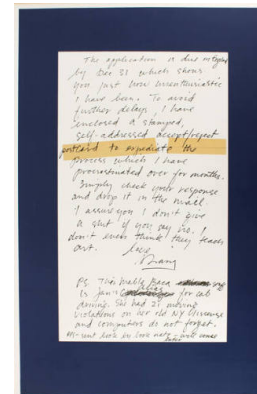 The application is due
by Dec 31 which shows
you just how unenthusiastic
I have been. To avoid
further delays, I have
enclosed a stamped,
self-addressed accept/reject
postcard to expediate the
process which I have
procrastinated over for months.
Simply check your response
and drop it in the mail
I assure you I don't give
a shit if you say no. I
don't even think they teach
art.
love
PS. This
is Jan's for cab
driving. She had 21 moving
violations on her old NY license
and computers do not forget.